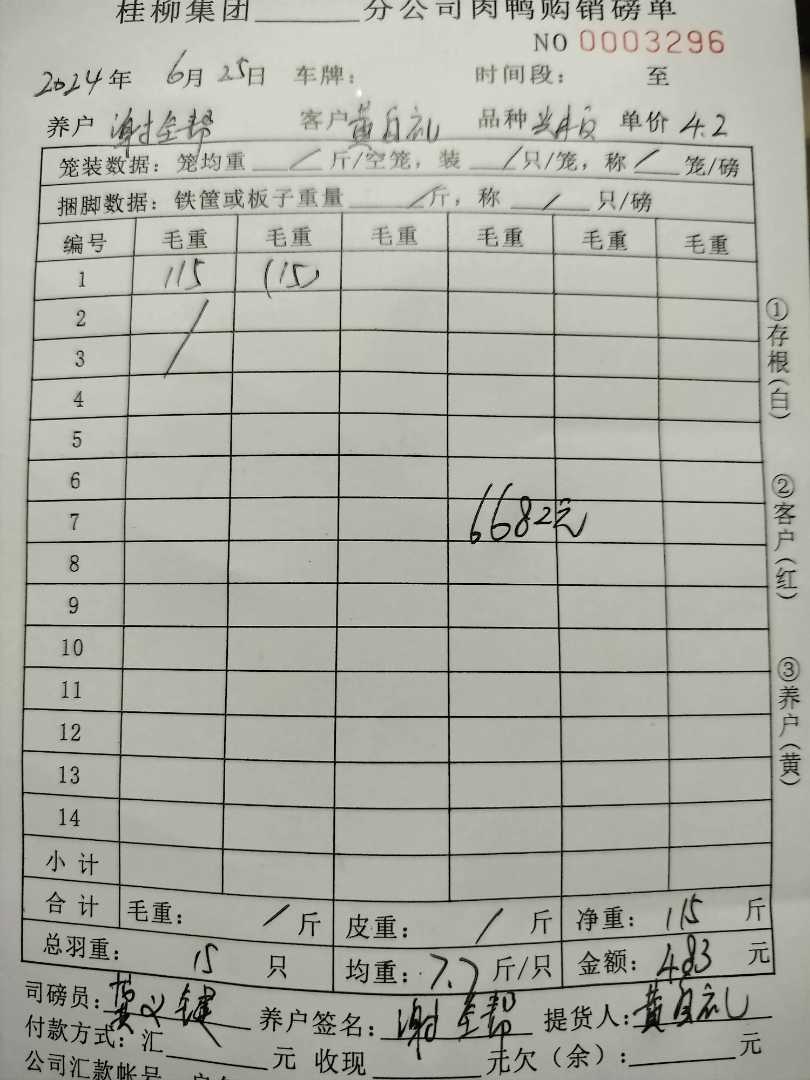 桂柳集团______分公司肉鸭购销磅单
NO 0003296
2024年 6月25日 车牌: 时间段: 至
养户 谢全帮 客户 黄自礼 品种 单价 4.2
笼装数据: 笼均重 / 斤/空笼, 装 / 只/笼, 称 / 笼/磅
捆脚数据: 铁筐或板子重量 / 斤, 称 / 只/磅
编号 毛重 毛重 毛重 毛重 毛重 毛重
1 115 (15)
2 /
3
4
5
6
7 6682元
8
9
10
11
12
13
14
小计
合计 毛重: / 斤 皮重: / 斤 净重: 115 斤
总羽重: 15 只 均重: 7.7 斤/只 金额: 483 元
司磅员: 黄义键 养户签名: 谢全帮 提货人: 黄自礼
付款方式: 汇______元 收现______元欠(余):______元
公司汇款帐号
①存根(白) ②客户(红) ③养户(黄)